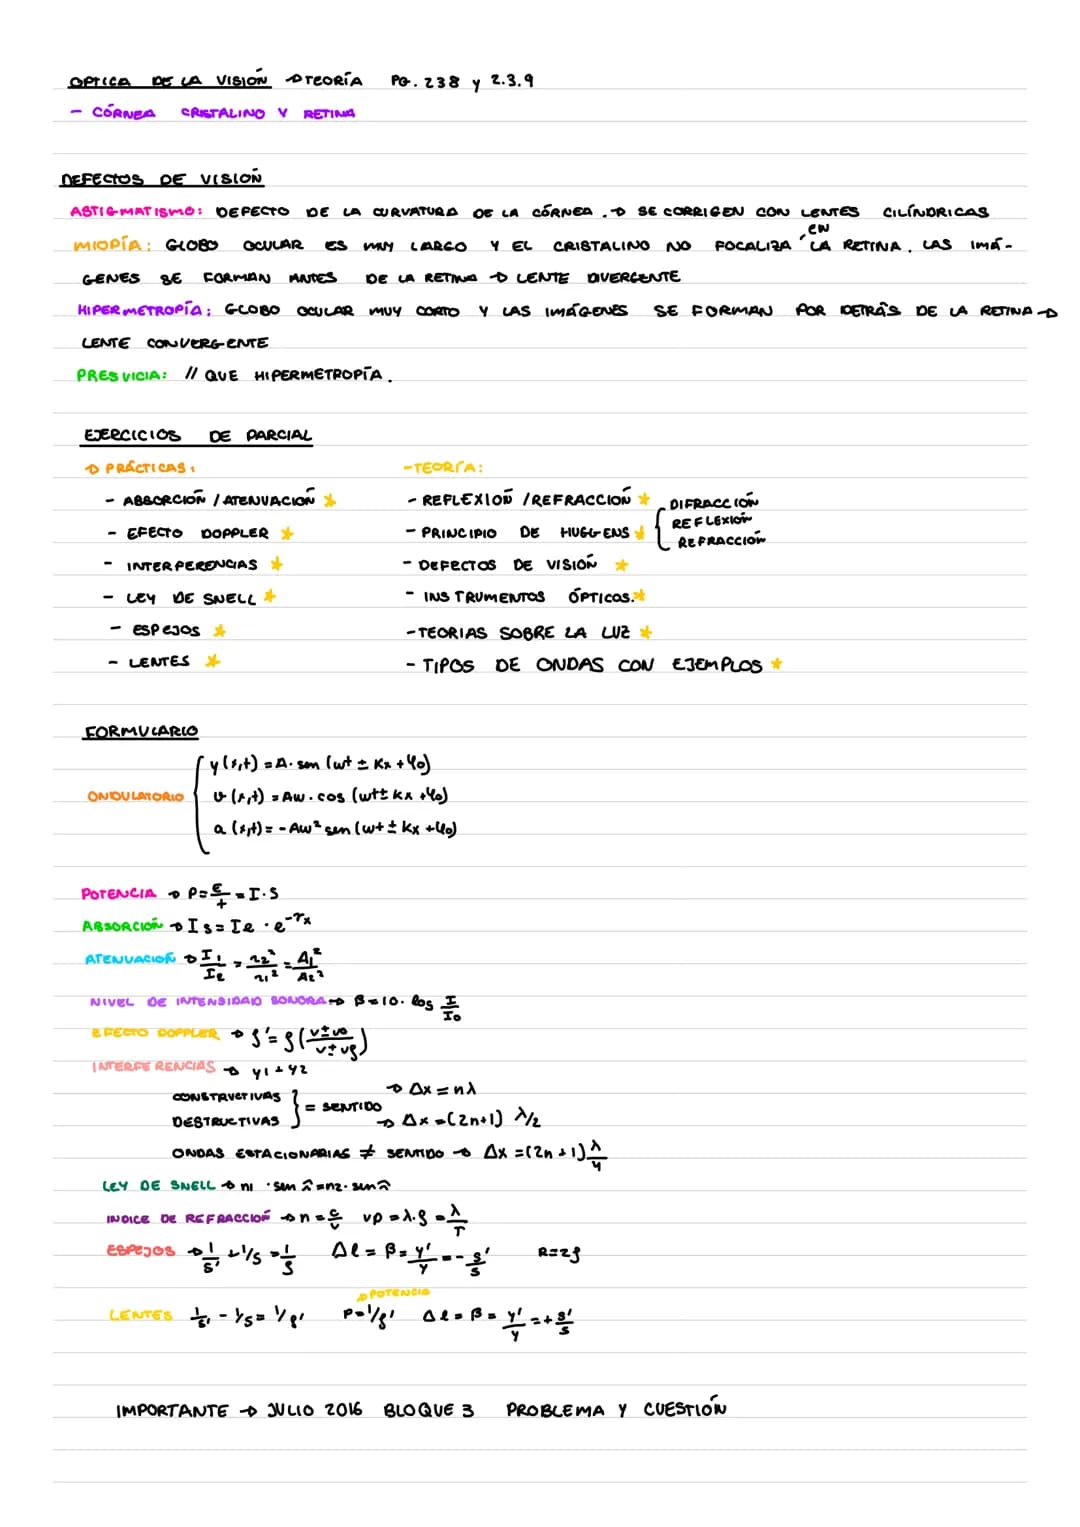 OPTICA DE LA VISIÓN → TEORÍA PG. 238 y 2.3.9
- CÓRNEA CRISTALINO Y RETINA
DEFECTOS DE VISIÓN
ASTIGMATISMO: DEFECTO DE LA CURVATURA DE LA CÓRNEA. → SE CORRIGEN CON LENTES CILÍNDRICAS
MIOPÍA: GLOBO OCULAR ES MUY LARGO Y EL CRISTALINO NO FOCALIZA EN LA RETINA. LAS IMÁ-
GENES SE FORMAN ANTES DE LA RETINA → LENTE DIVERGENTE
HIPERMETROPÍA: GLOBO OCULAR MUY CORTO Y LAS IMÁGENES SE FORMAN POR DETRÁS DE LA RETINA →
LENTE CONVERGENTE
PRESVICIA: // QUE HIPERMETROPÍA.
EJERCICIOS DE PARCIAL
→ PRÁCTICAS:
- ABSORCIÓN / ATENUACIÓN ★
- EFECTO DOPPLER ★
- INTERFERENCIAS ★
- LEY DE SNELL ★
- ESPEJOS ★
- LENTES ★
- TEORÍA:
- REFLEXIÓN / REFRACCIÓN ★
- PRINCIPIO DE HUGGENS ★ { DIFRACCIÓN
REFLEXIÓN
REFRACCIÓN
- DEFECTOS DE VISIÓN ★
- INSTRUMENTOS ÓPTICOS. ★
- TEORIAS SOBRE LA LUZ ★
- TIPOS DE ONDAS CON EJEMPLOS ★
FORMULARIO
ONDULATORIO { y(x,t) = A · sen (wt ± Kx + φ0)
v (x,t) = Aw · cos (wt ± kx + φ0)
a (x,t) = - Aw² sen (wt ± kx + φ0)
POTENCIA → P = E/t = I · S
ABSORCIÓN → Is = Ie · e^-τx
ATENUACIÓN → I1/I2 = r2²/r1² = A1²/A2²
NIVEL DE INTENSIDAD SONORA → β = 10 · log I/I0
EFECTO DOPPLER → f' = f (v ± vo / v ± vf)
INTERFERENCIAS → y1 + y2
CONSTRUCTIVAS } = SENTIDO → Δx = nλ
DESTRUCTIVAS → Δx = (2n+1) λ/2
ONDAS ESTACIONARIAS ≠ SENTIDO → Δx = (2n+1) λ/4
LEY DE SNELL → n1 · sen î = n2 · sen r̂
INDICE DE REFRACCIÓN → n = c/v vp = λ · f = λ/T
ESPEJOS → 1/s' + 1/s = 1/f Δl = β = y'/y = - s'/s R = 2f
→ POTENCIA
LENTES 1/s' - 1/s = 1/f' P = 1/f' Δl = β = y'/y = + s'/s
IMPORTANTE → JULIO 2016 BLOQUE 3 PROBLEMA Y CUESTIÓN